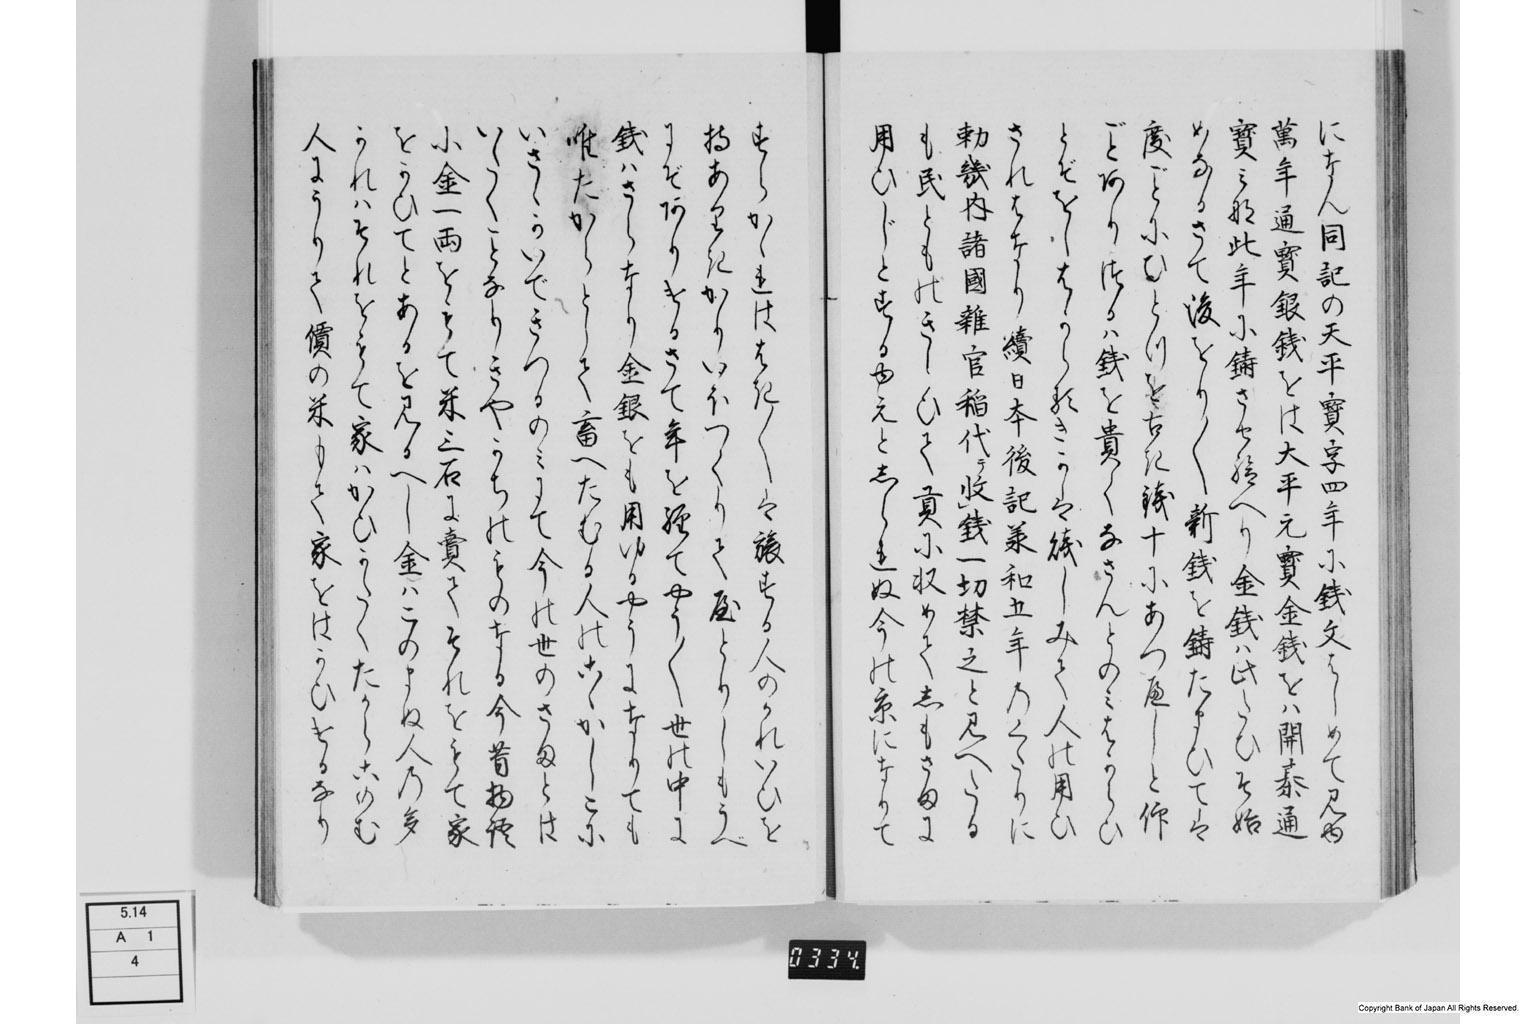 になん同記の天平寳字四年に銭文はしめて見ゆ
萬年通寳銀銭をは大平元寳金銭をは開泰通
寳之那此年に鋳させ給へり金銭ハ此たひそ始
めなるさて後をり〳〵新銭を鋳たまひては
度ことにひとつを古き銭十にあつへしと仰
ことありけるハ銭を貴くなさんとのみはからひ
とそをしはからるきかは銭しみて人の用ひ
されはなり續日本後記承和五年乃くたりに
勅畿内諸國雜官稲代テ收銭一切禁之と見へたる
も民とものきらひて貢に収めてしもさまに
用ひしとする由えとしられぬ今の京になりて
すらかくれはをき〳〵は旅する人のかれいひを
持あるきかりいほつくりて屋とりしもうべ
にそありけるさて年を経てやう〳〵世の中に
銭ハさらなり金銀をも用ゆるやうになりても
唯たからとして畜へたむる人のおくかしこに
いさゝかいできつるのみにて今の世のさまとは
いたくことなりきやかちのものなる今昔物語
に金一両をもて米三石に賣てそれをもて家
をかひてとあるを見るへし金ハこのまぬ人乃多
かれハそれをもて家ハかひかたくたからこのむ
人にうりて價の米もて家をはかひけるなり
5.14
A 1
4
0334.
Copyright Bank of Japan All Rights Reserved.